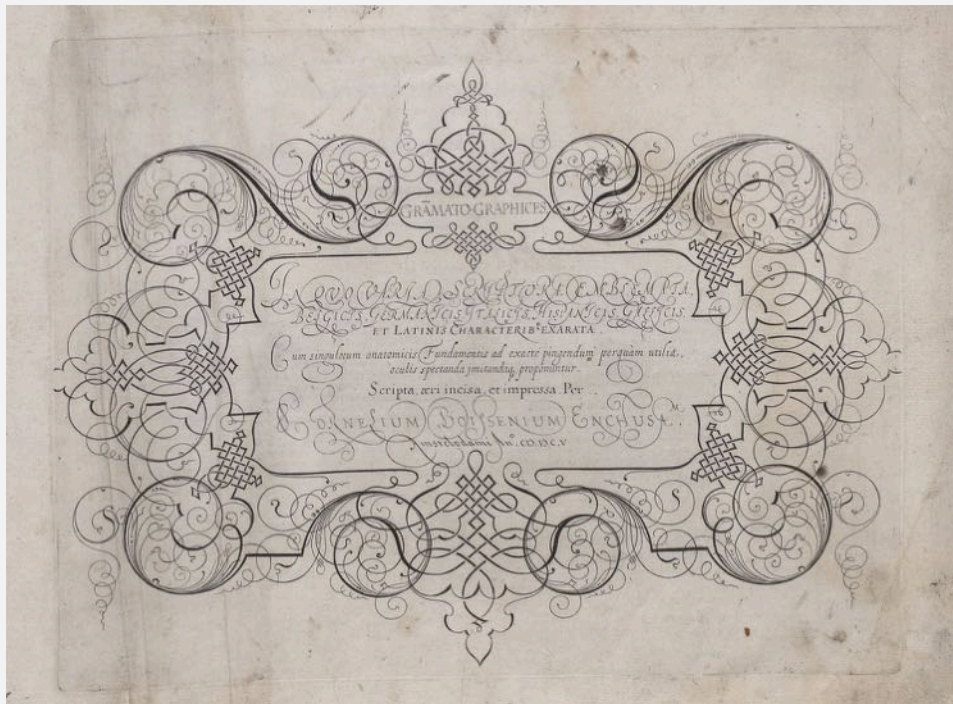 GRĀMATO-GRAPHICES
IN QUO VARIA SCRIPTURÆ EMBLEMATA,
BELGICIS, GERMANICIS, ITALICIS, HISPANICIS, GALLICIS,
ET LATINIS CHARACTERIBꝰ EXARATA.
Cum singulorum anatomicis Fundamentis ad exacte pingendum perquàm utilia,
oculis spectanda imitandaq, proponuntur.
Scripta, æri incisa, et impressa Per
CORNELIUM BOISSENIUM ENCHUSA M.
Amstelodami Anº. CIƆ.IƆC.V